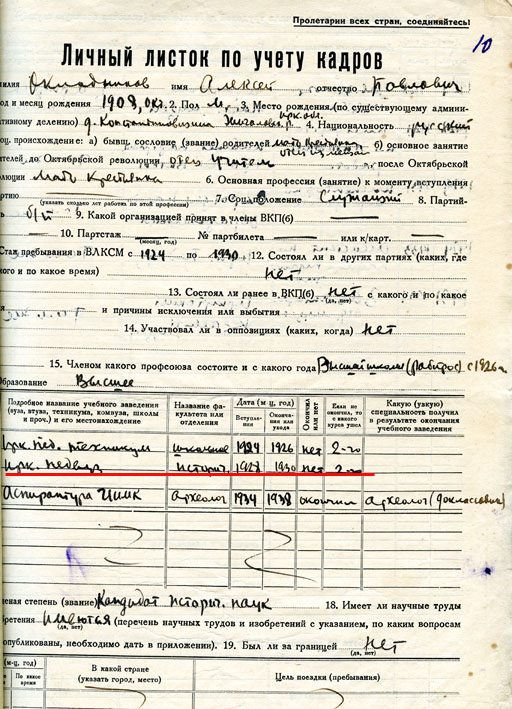 Пролетарии всех стран, соединяйтесь!
10
Личный листок по учету кадров
милия Окладников имя Алексей отчество Павлович
од и месяц рождения 1908, окт. 2. Пол М. 3. Место рождения (по существующему админи-
тивному делению) д. Константиновщина Жигаловск. р. Ирк. обл. 4. Национальность русский
оц. происхождение: а) бывш. сословие (звание) родителей мать крестьянка отец из мещан б) основное занятие
ителей до Октябрьской революции, отец учитель после Октябрьской
люции мать крестьянка 6. Основная профессия (занятие) к моменту вступления
ртию 7. Соц. положение Служащий 8. Партий-
(указать сколько лет работы по этой профессии)
б/п 9. Какой организацией принят в члены ВКП(б)
10. Партстаж № партбилета или к/карт.
(месяц, год)
Стаж пребывания в ВЛКСМ с 1924 по 1930 12. Состоял ли в других партиях (каких, где
кого и по какое время) Нет
13. Состоял ли ранее в ВКП(б) нет с какого и по какое
(да, нет)
я и причины исключения или выбытия
14. Участвовал ли в оппозициях (каких, когда) нет
15. Членом какого профсоюза состоите и с какого года Высшей школы (рабпрос) с 1926 г.
Образование Высшее
Подробное название учебного заведения (вуза, втуза, техникума, комвуза, школы и проч.) и его местонахождение
Название факультета или отделения
Дата (м-ц, год)
Вступления
Окончания или ухода
Окончил или нет
Если не окончил, то с какого курса ушел
Какую (узкую) специальность получил в результате окончания учебного заведения
Ирк. Пед. техникум школьное 1924 1926 нет 2-го
Ирк. педвуз историч. 1928 1930 нет 2-го
Аспирантура ИИМК Археолог 1934 1938 окончил Археолог
ченая степень (звание) Кандидат историч. наук 18. Имеет ли научные труды
бретения имеются (перечень научных трудов и изобретений с указанием, по каким вопросам
(да, нет)
опубликованы, необходимо дать в приложении). 19. Был ли за границей Нет
(да, нет)
(м-ц, год)
По какое время
В какой стране
(указать город, место)
Цель поездки (пребывания)